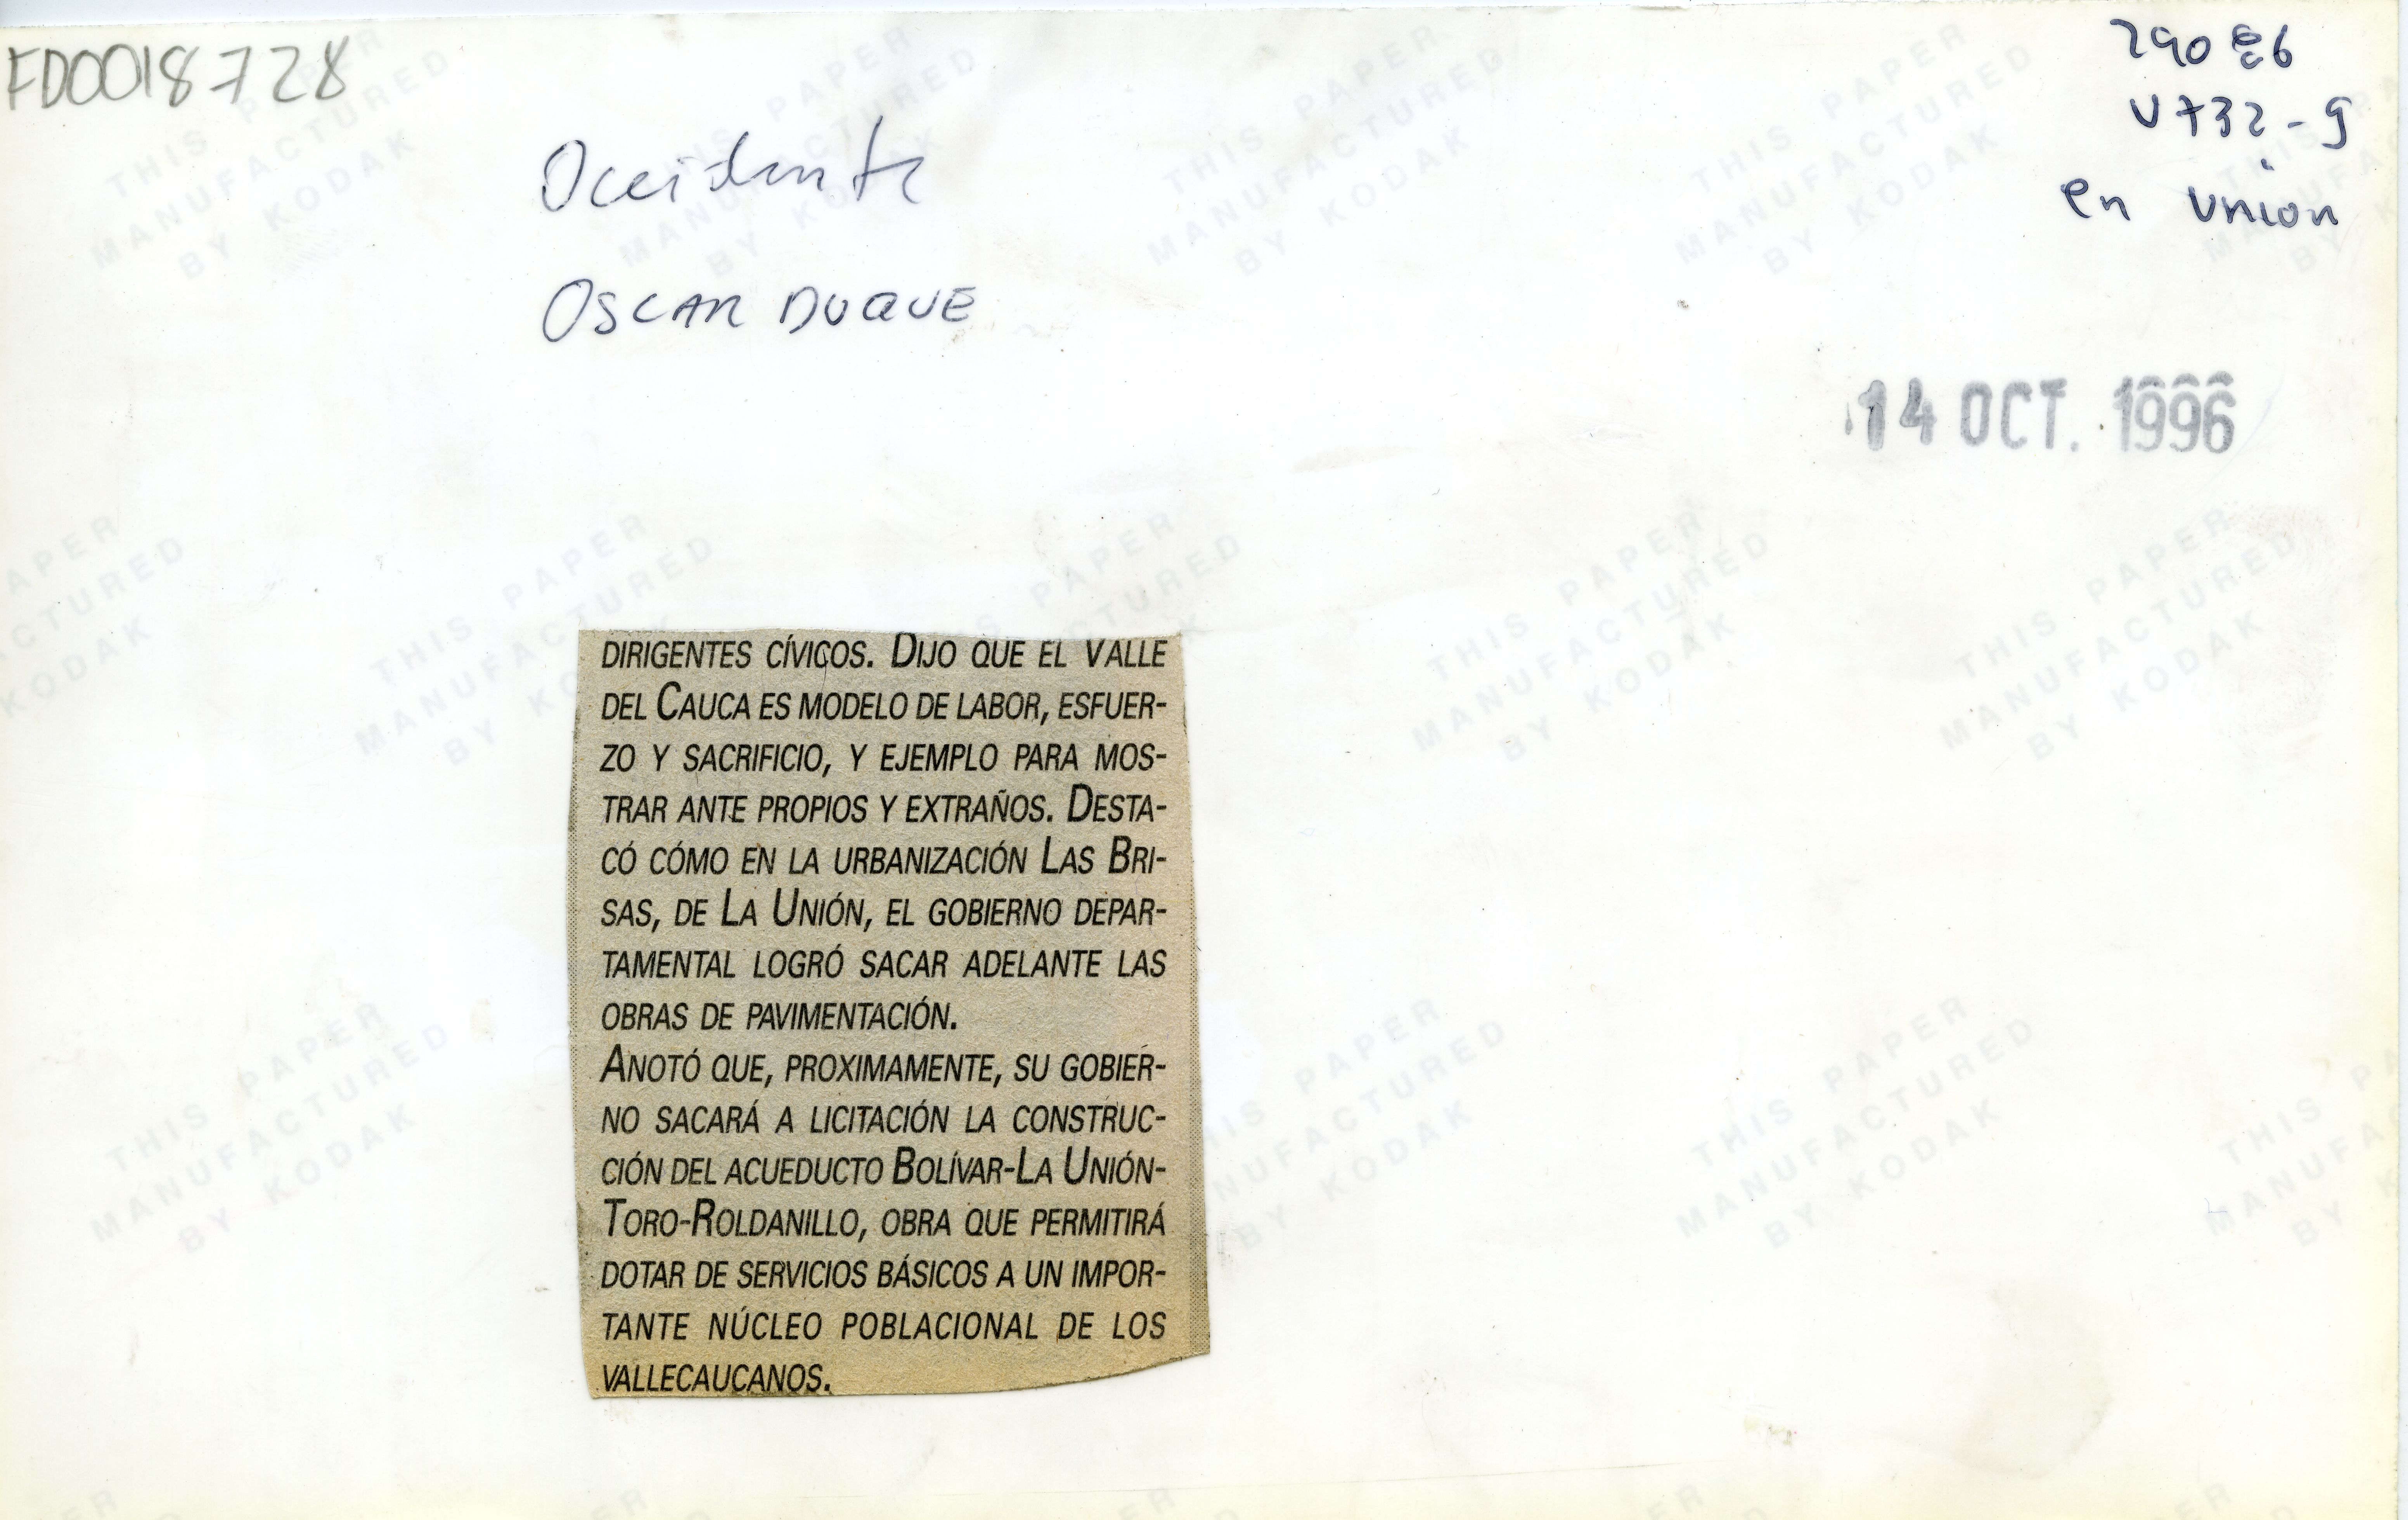 FD0018728
V732-9
en union
Occidente
OSCAR DUQUE
14 OCT. 1996
DIRIGENTES CÍVICOS. DIJO QUE EL VALLE
DEL CAUCA ES MODELO DE LABOR, ESFUER-
ZO Y SACRIFICIO, Y EJEMPLO PARA MOS-
TRAR ANTE PROPIOS Y EXTRAÑOS. DESTA-
CÓ CÓMO EN LA URBANIZACIÓN LAS BRI-
SAS, DE LA UNIÓN, EL GOBIERNO DEPAR-
TAMENTAL LOGRÓ SACAR ADELANTE LAS
OBRAS DE PAVIMENTACIÓN.
ANOTÓ QUE, PROXIMAMENTE, SU GOBIER-
NO SACARÁ A LICITACIÓN LA CONSTRUC-
CIÓN DEL ACUEDUCTO BOLÍVAR-LA UNIÓN-
TORO-ROLDANILLO, OBRA QUE PERMITIRÁ
DOTAR DE SERVICIOS BÁSICOS A UN IMPOR-
TANTE NÚCLEO POBLACIONAL DE LOS
VALLECAUCANOS.
THIS PAPER
MANUFACTURED
BY KODAK